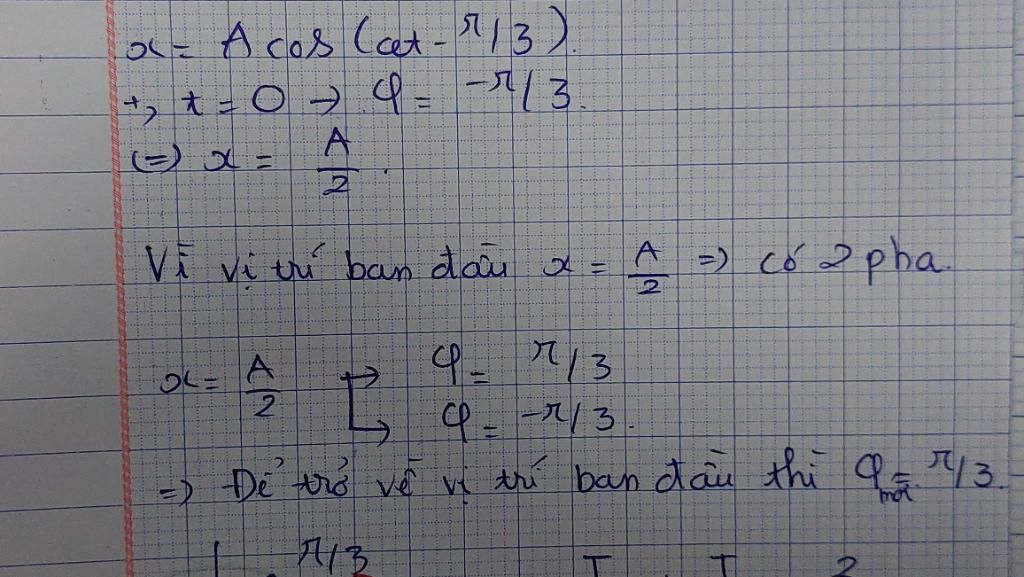 x = A cos (ωt - π/3).
+, t = 0 → φ = -π/3.
(=) x = A/2.
Vì vị trí ban đầu x = A/2 => có 2 pha.
x = A/2 → φ = π/3
↳ φ = -π/3.
=> Để trở về vị trí ban đầu thì φ mới = π/3.
π/3